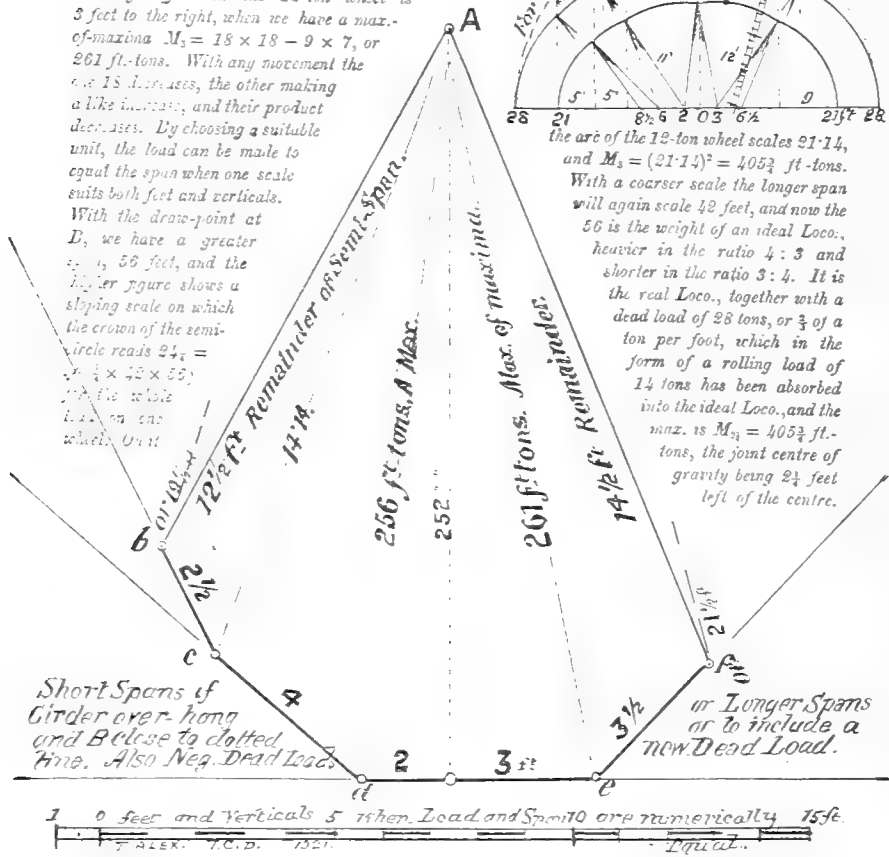 3 feet to the right, when we have a max.-
of-maxima M₃ = 18 × 18 – 9 × 7, or
261 ft.-tons. With any movement the
one 18 decreases, the other making
a like increase, and their product
decreases. By choosing a suitable
unit, the load can be made to
equal the span when one scale
suits both feet and verticals.
With the draw-point at
B, we have a greater
56 feet, and the
higher figure shows a
sloping scale on which
the crown of the semi-
circle reads
× 42 × 56)
the whole
on one
wheel. On it
A
For
11'
12'
5' 5' 9
28 21 8½ 6 2 0 3 6½ 21ft 28
the arc of the 12-ton wheel scales 21·14,
and M₃ = (21·14)² = 405¾ ft-tons.
With a coarser scale the longer span
will again scale 42 feet, and now the
56 is the weight of an ideal Loco.,
heavier in the ratio 4 : 3 and
shorter in the ratio 3 : 4. It is
the real Loco., together with a
dead load of 28 tons, or ⅔ of a
ton per foot, which in the
form of a rolling load of
14 tons has been absorbed
into the ideal Loco., and the
max. is = 405¾ ft.-
tons, the joint centre of
gravity being 2¼ feet
left of the centre.
12½ ft Remainder of Semi-Span.
14'14.
256 ft tons. A Max.
252
261 ft tons. Max. of maxima.
14½ ft Remainder
b
2½
c
4
d
2
3 ft
e
3½
f
21½ ft
Short Spans if
Girder over-hang
and B close to dotted
line. Also Neg. Dead Load.
or Longer Spans
or to include a
new Dead Load.
1 0 feet and Verticals 5 when Load and Span 10 are numerically 15 ft.
T ALEX. T.C.D. 1921. Equal.